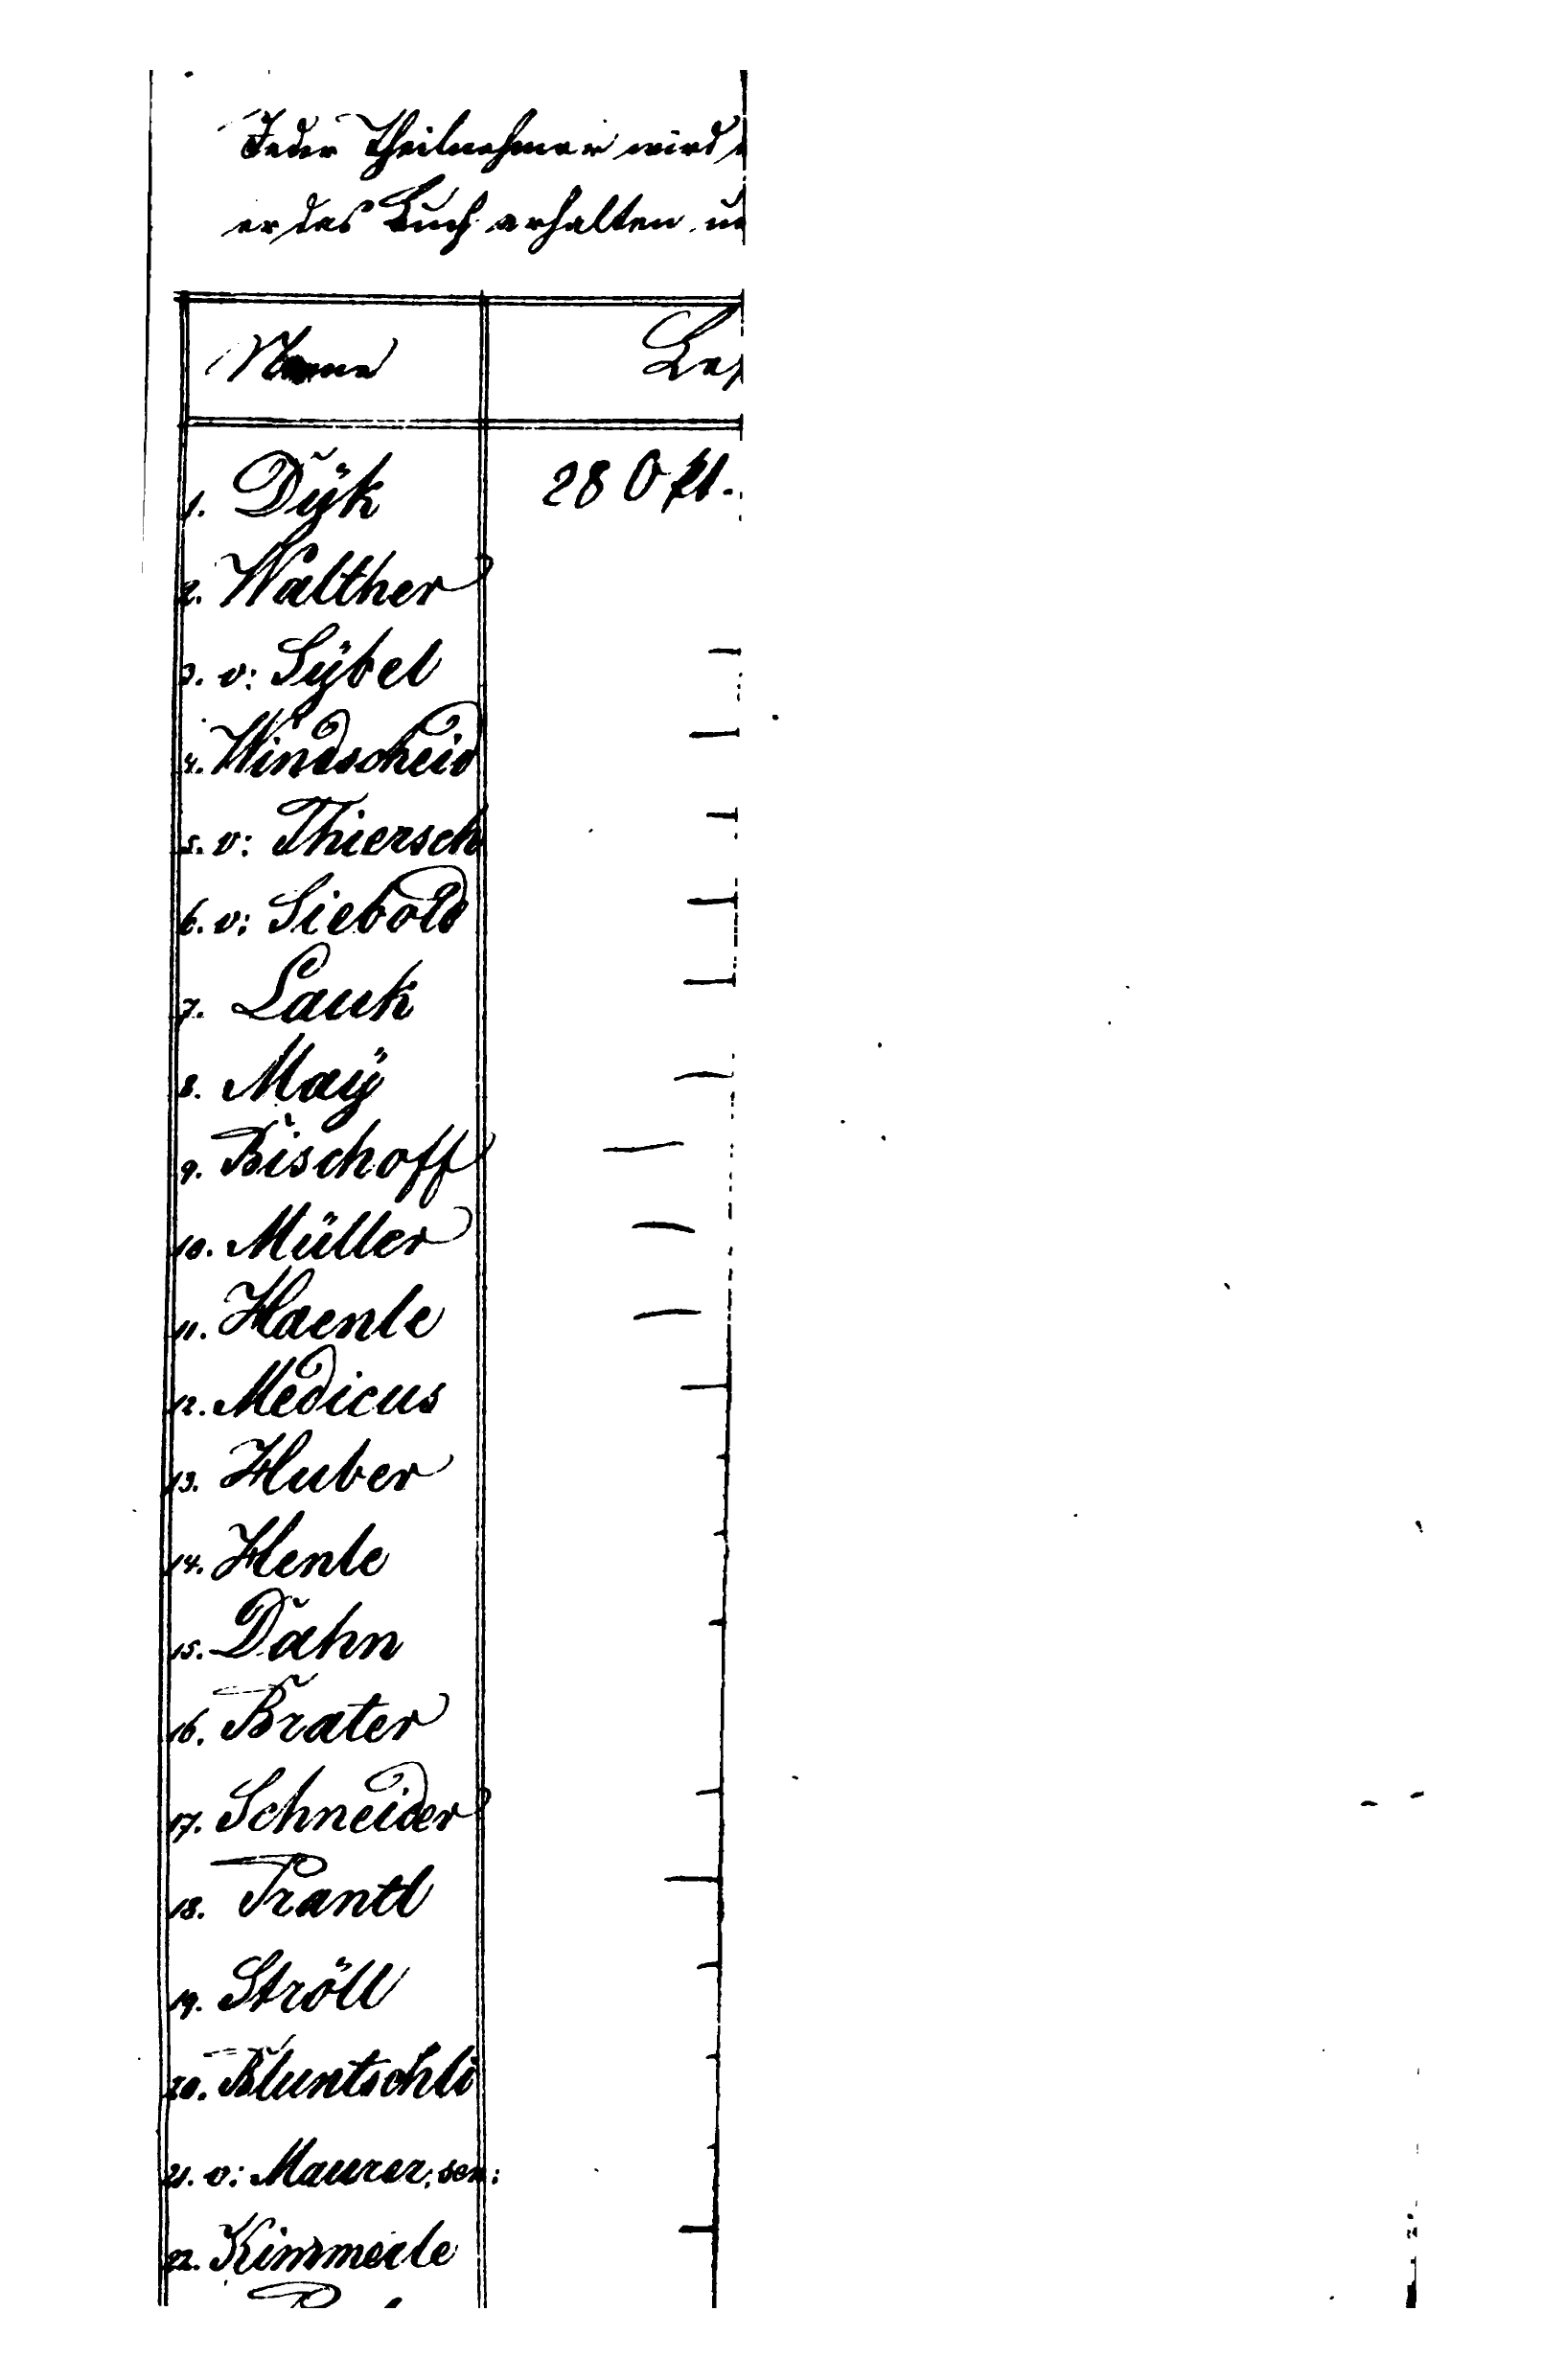 Jeder Theilnehmer wird
er das Buch erhalten
Name
1. Dÿk 280 fl.
2. Walther
3. v: Sÿbel
4. Windscheid
5. v: Thiersch
6. v: Siebold
7. Lauk
8. Maÿ
9. Bischoff
10. Müller
11. Haenle
12. Medicus
13. Huber
14. Henle
15. Dahn
16. Brater
17. Schneider
18. Prantl
19. Ströll
20. Bluntschli
21. v: Maurer, sen:
22. Kimmerle